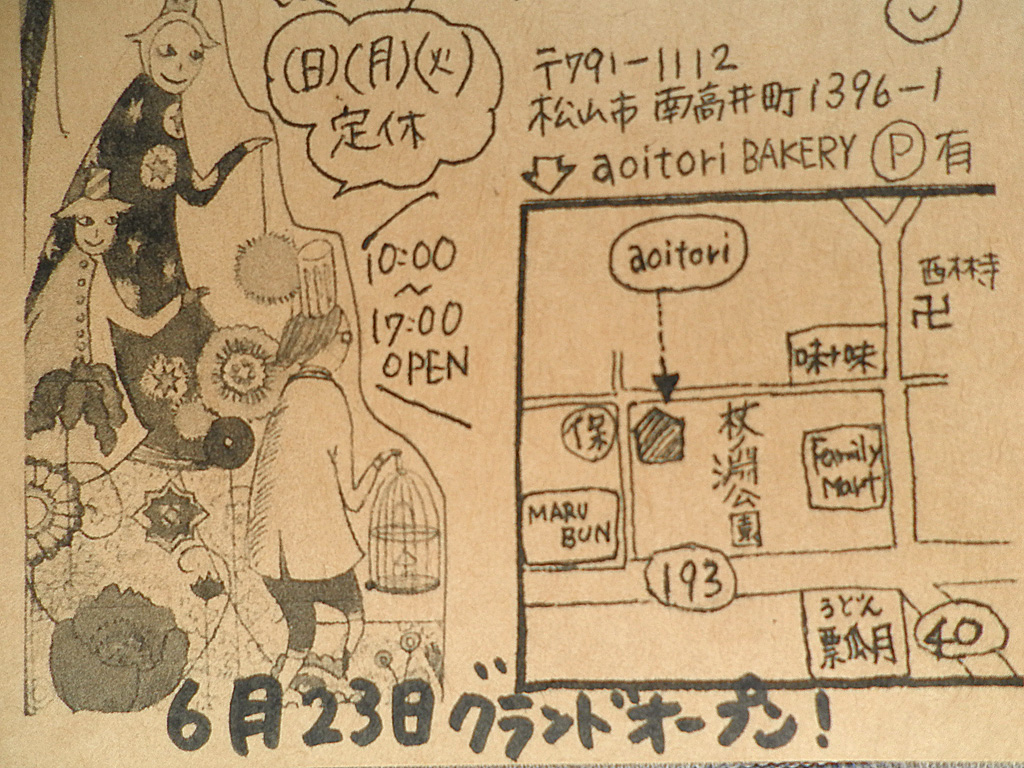 (日)(月)(火)
定休
〒791-1112
松山市 南高井町1396-1
aoitori BAKERY Ⓟ有
10:00
~
17:00
OPEN
aoitori
西林寺
卍
味十味
保
杖ノ淵公園
Family
Mart
MARU
BUN
193
うどん
瓢月
40
6月23日グランドオープン!